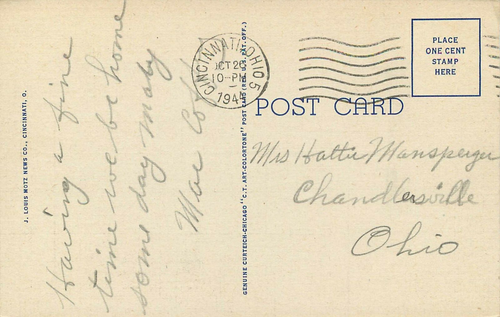 Having a fine
time we be home
some day maby
Mae Co
J. LOUIS MOTZ NEWS CO., CINCINNATI, O.
GENUINE CURTEICH-CHICAGO "C.T. ART-COLORTONE" POST CARD (REG. U.S. PAT. OFF.)
CINCINNATI, OHIO 5
OCT 20
10-PM
194
POST CARD
PLACE
ONE CENT
STAMP
HERE
Mrs Hattie Mansperger
Chandlersville
Ohio